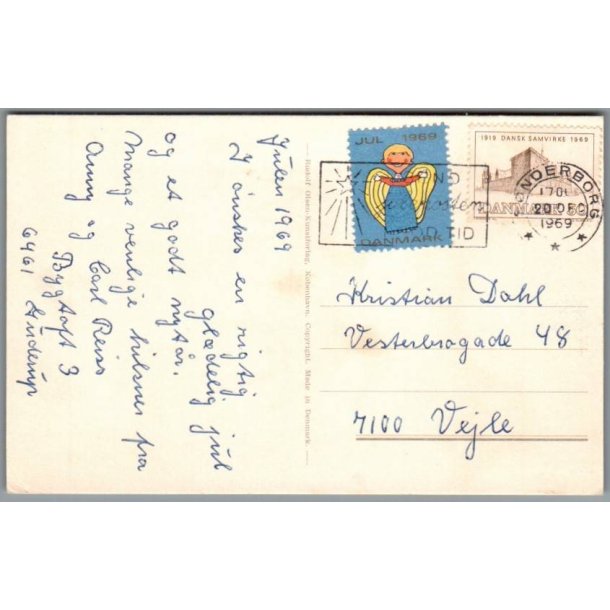 Julen 1969
I ønskes en rigtig
glædelig jul
og et godt nytår.
Mange venlige hilsner fra
Anny og Carl
Bygtoft 3
6461
Rudolf Olsens Kunstforlag, København. Copyright. Made in Denmark.
JUL 1969
DANMARK
1919 DANSK SAMVIRKE 1969
DANMARK 50
SØNDERBORG
20 DEC
1969
SEND
juleposten
I GOD TID
Kristian Dahl
Vesterbrogade 48
7100 Vejle